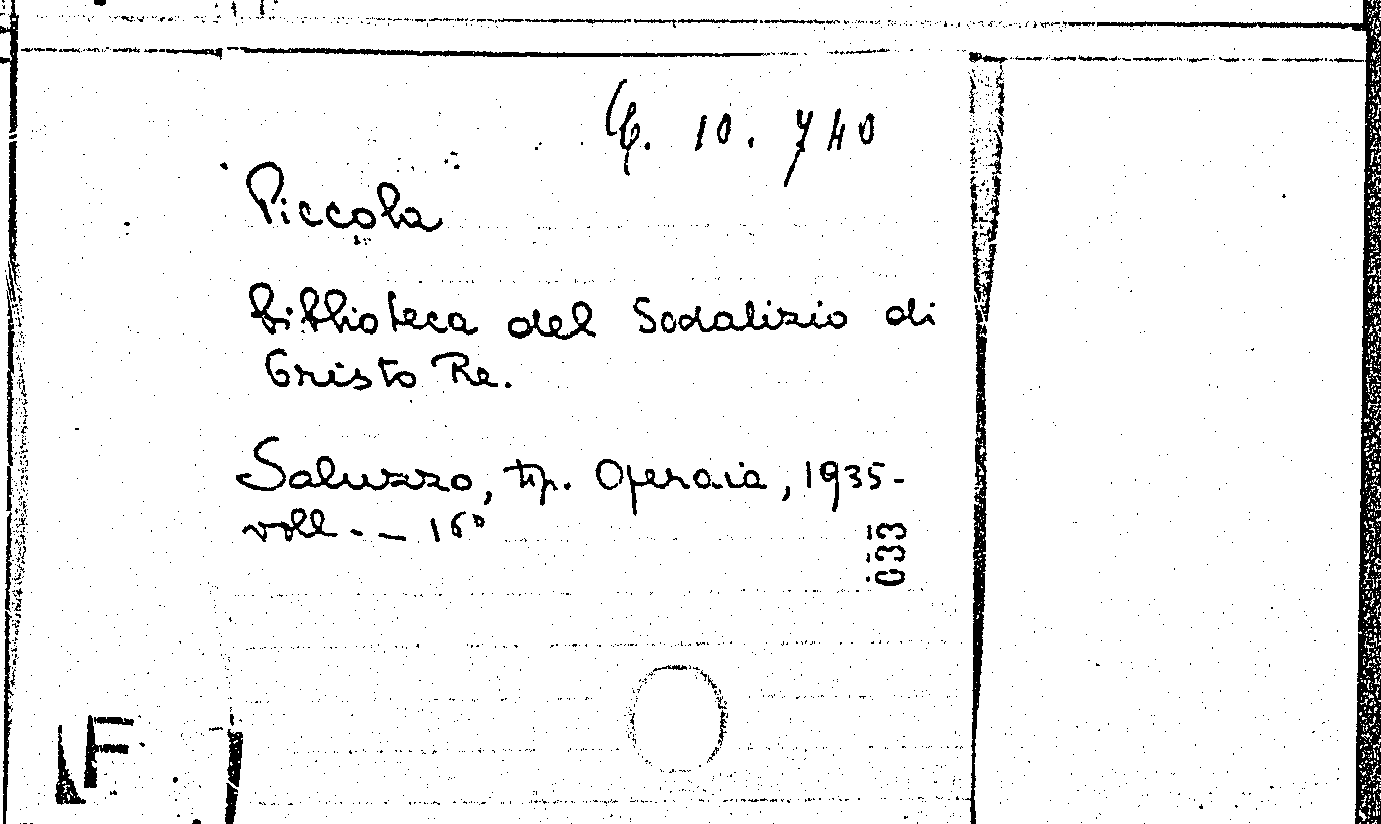 10. 740
Piccola
Biblioteca del Sodalizio di
Cristo Re.
Saluzzo, tip. Operaia, 1935-
voll. - 16°
033